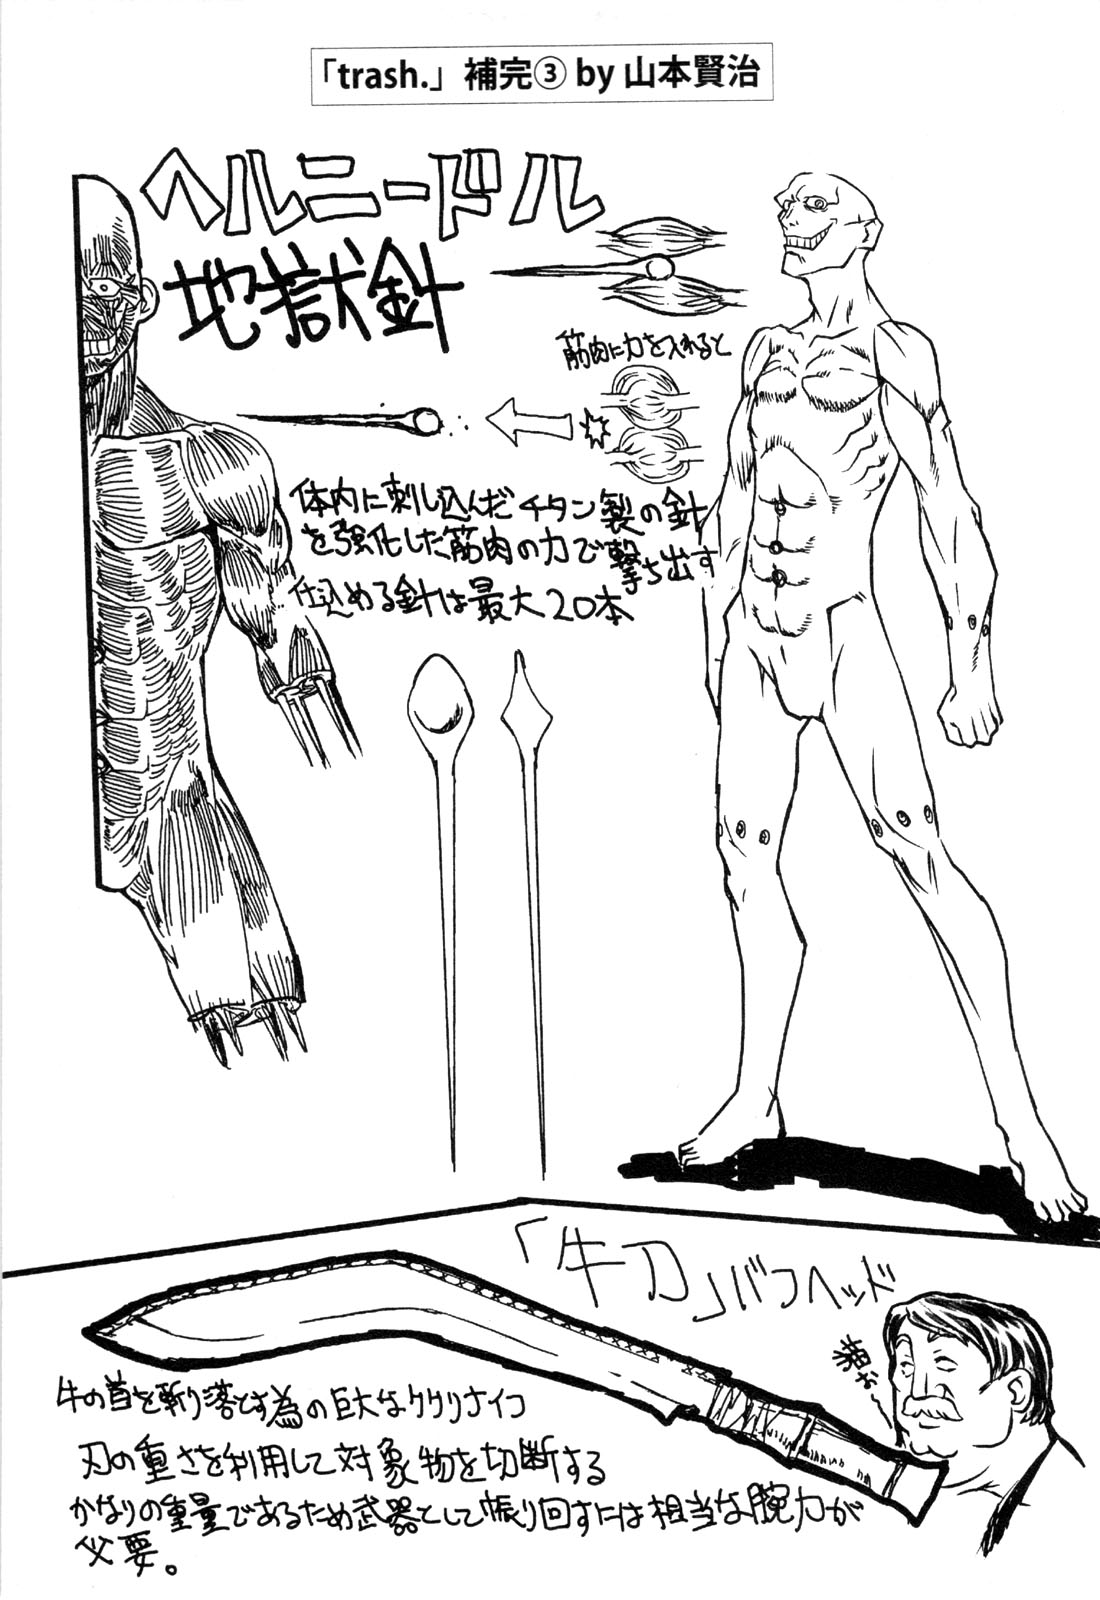 「trash.」補完③ by 山本賢治
ヘルニードル
地獄針
筋肉に力を入れると
体内に刺し込んだチタン製の針
を強化した筋肉の力で撃ち出す
仕込める針は最大20本
「牛刀」バフヘッド
猫が〜
牛の首を斬り落とす為の巨大なククリナイフ
刃の重さを利用して対象物を切断する
かなりの重量であるため武器として振り回すには相当な腕力が
必要。